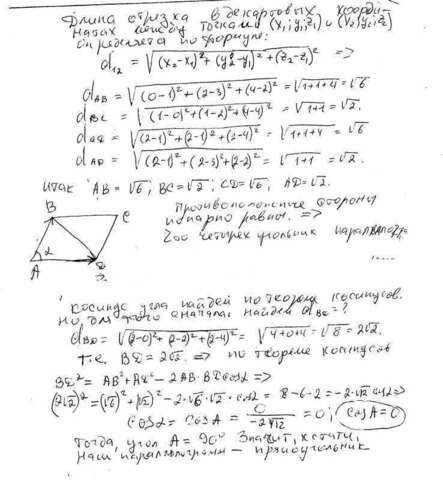 Длина отрезка в декартовых коорди-
натах между точками (x₁; y₁; z₁) и (x₂; y₂; z₂)
определяется по формуле:
d₁₂ = √((x₂-x₁)² + (y₂-y₁)² + (z₂-z₁)²) =>
d_AB = √((0-1)² + (2-3)² + (4-2)²) = √(1+1+4) = √6
d_BC = √((1-0)² + (1-2)² + (4-4)²) = √(1+1) = √2.
= √((2-1)² + (2-1)² + (2-4)²) = √(1+1+4) = √6
d_AD = √((2-1)² + (2-3)² + (2-2)²) = √(1+1) = √2.
Итак AB = √6; BC = √2; CD = √6, AD = √2.
B
C
A
α
Противоположные стороны
попарно равны. =>
четырехугольник
.....
Косинус угла найдем по теореме косинусов.
Но для этого сначала найдем d_BD = ?
d_BD = √((2-0)² + (2-2)² + (2-4)²) = √(4+0+4) = √8 = 2√2.
т.е. BD = 2√2. => по теореме косинусов
BD² = AB² + AD² - 2AB·BD cosα =>
(2√2)² = (√6)² + (√2)² - 2·√6·√2·cosα = 8-6-2 = -2·√12 cosα =>
cosα = cosA = 0/(-2√12) = 0; cosA = 0
Тогда угол A = 90° Значит, кстати,
наш параллелограмм - прямоугольник